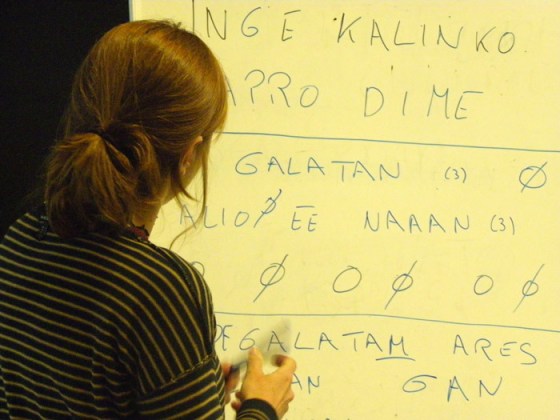 INGE KALINKO
APRO DIME
GALATAN (3) Ø
ALIOØ EE NAAAN (3)
Ø O Ø O Ø
EGALATAM ARES
AN GAN